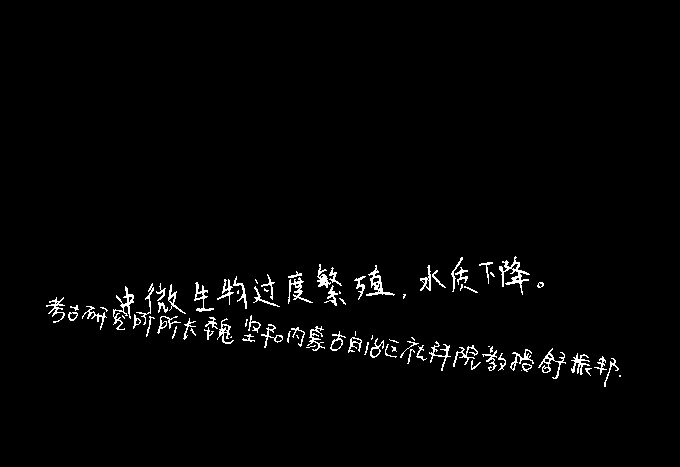 中微生物过度繁殖，水质下降。
考古研究所所长魏坚和内蒙古自治区社科院教授舒振邦.